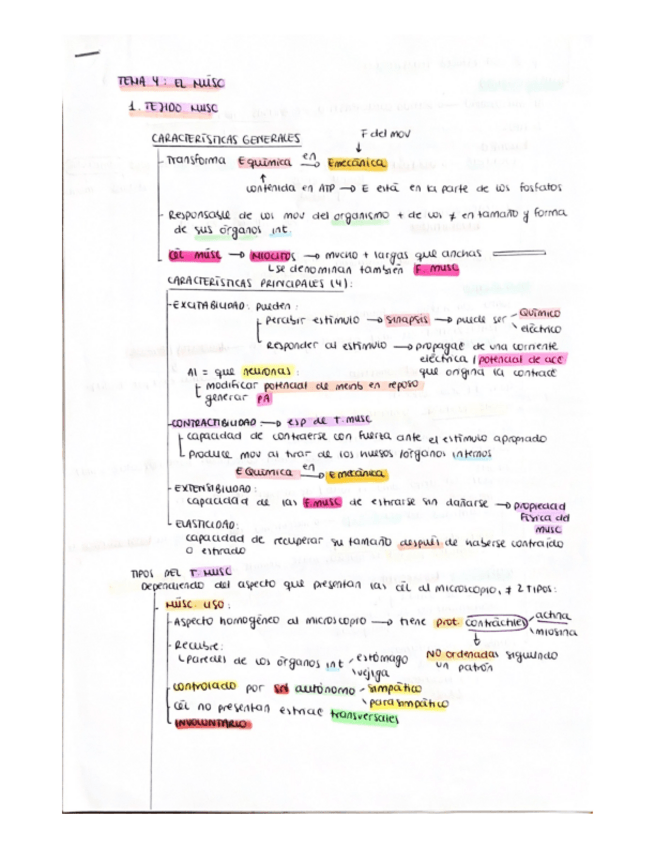 TEMA 4: EL MÚSC
1. TEJIDO MUSC
CARACTERÍSTICAS GENERALES
F del mov
↓
Transforma E química en → E mecánica
↑
contenida en ATP → E está en la parte de los fosfatos
Responsable de los mov del organismo + de los ≠ en tamaño y forma
de sus órganos int.
cél músc → MIOCITOS → mucho + largas que anchas
↳ se denominan también F. musc
CARACTERÍSTICAS PRINCIPALES (4):
-EXCITABILIDAD: pueden:
percibir estímulo → sinapsis → puede ser - químico
eléctrico
Responder al estímulo → propagac de una corriente
eléctrica / potencial de acc
que origina la contracc
Al = que neuronas:
modificar potencial de memb en reposo
generar PA
-CONTRACTIBILIDAD → esp de T. musc
capacidad de contraerse con fuerza ante el estímulo apropiado
produce mov al tirar de los huesos /órganos internos
E química en → E mecánica
-EXTENSIBILIDAD:
capacidad de las F. musc de estirarse sin dañarse → propiedad
física del
musc
ELASTICIDAD:
capacidad de recuperar su tamaño después de haberse contraído
o estirado
TIPOS DEL T. MUSC
Dependiendo del aspecto que presentan las cél al microscopio, ≠ 2 TIPOS:
- MÚSC. LISO:
-Aspecto homogéneo al microscopio → tiene prot. contráctiles - actina
miosina
↓
NO ordenadas siguiendo
un patrón
- Recubre:
↳ Paredes de los órganos int - estómago
vejiga
- controlado por SN autónomo - simpático
parasimpático
- cél no presentan estriac transversales
INVOLUNTARIO